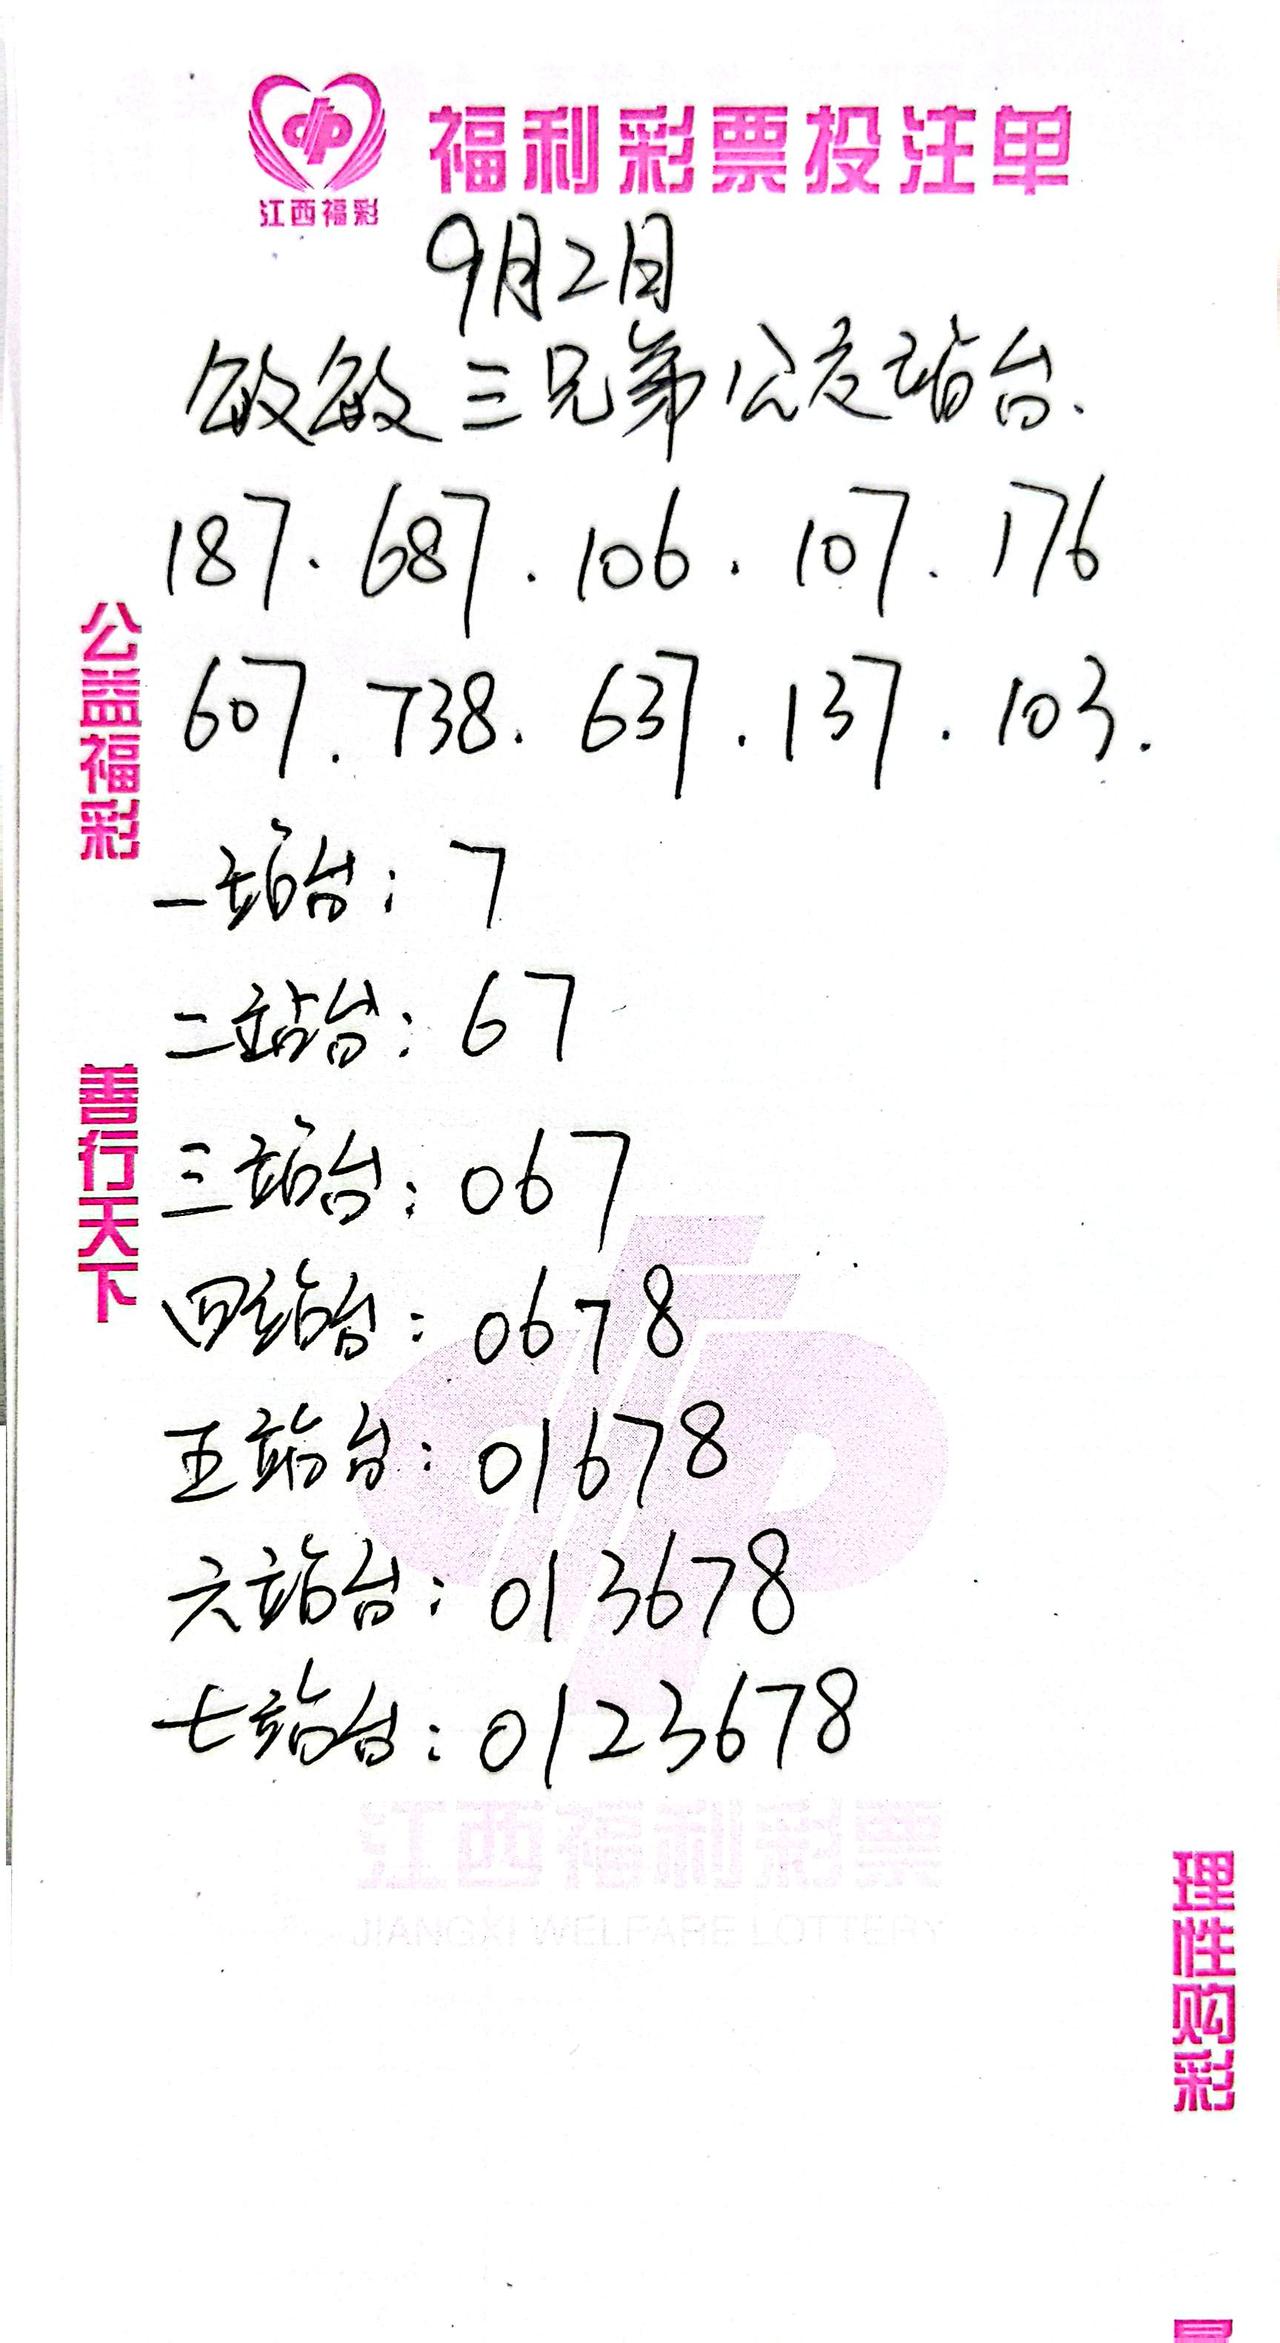 福利彩票投注单
江西福彩
9月2日
敏敏三兄弟公交站台.
187.687.106.107.176
607.738.637.137.103.
一站台:7
二站台:67
三站台:067
四站台:0678
五站台:01678
六站台:013678
七站台:0123678
公益福彩
善行天下
江西福利彩票
JIANGXI WELFARE LOTTERY
理性购彩